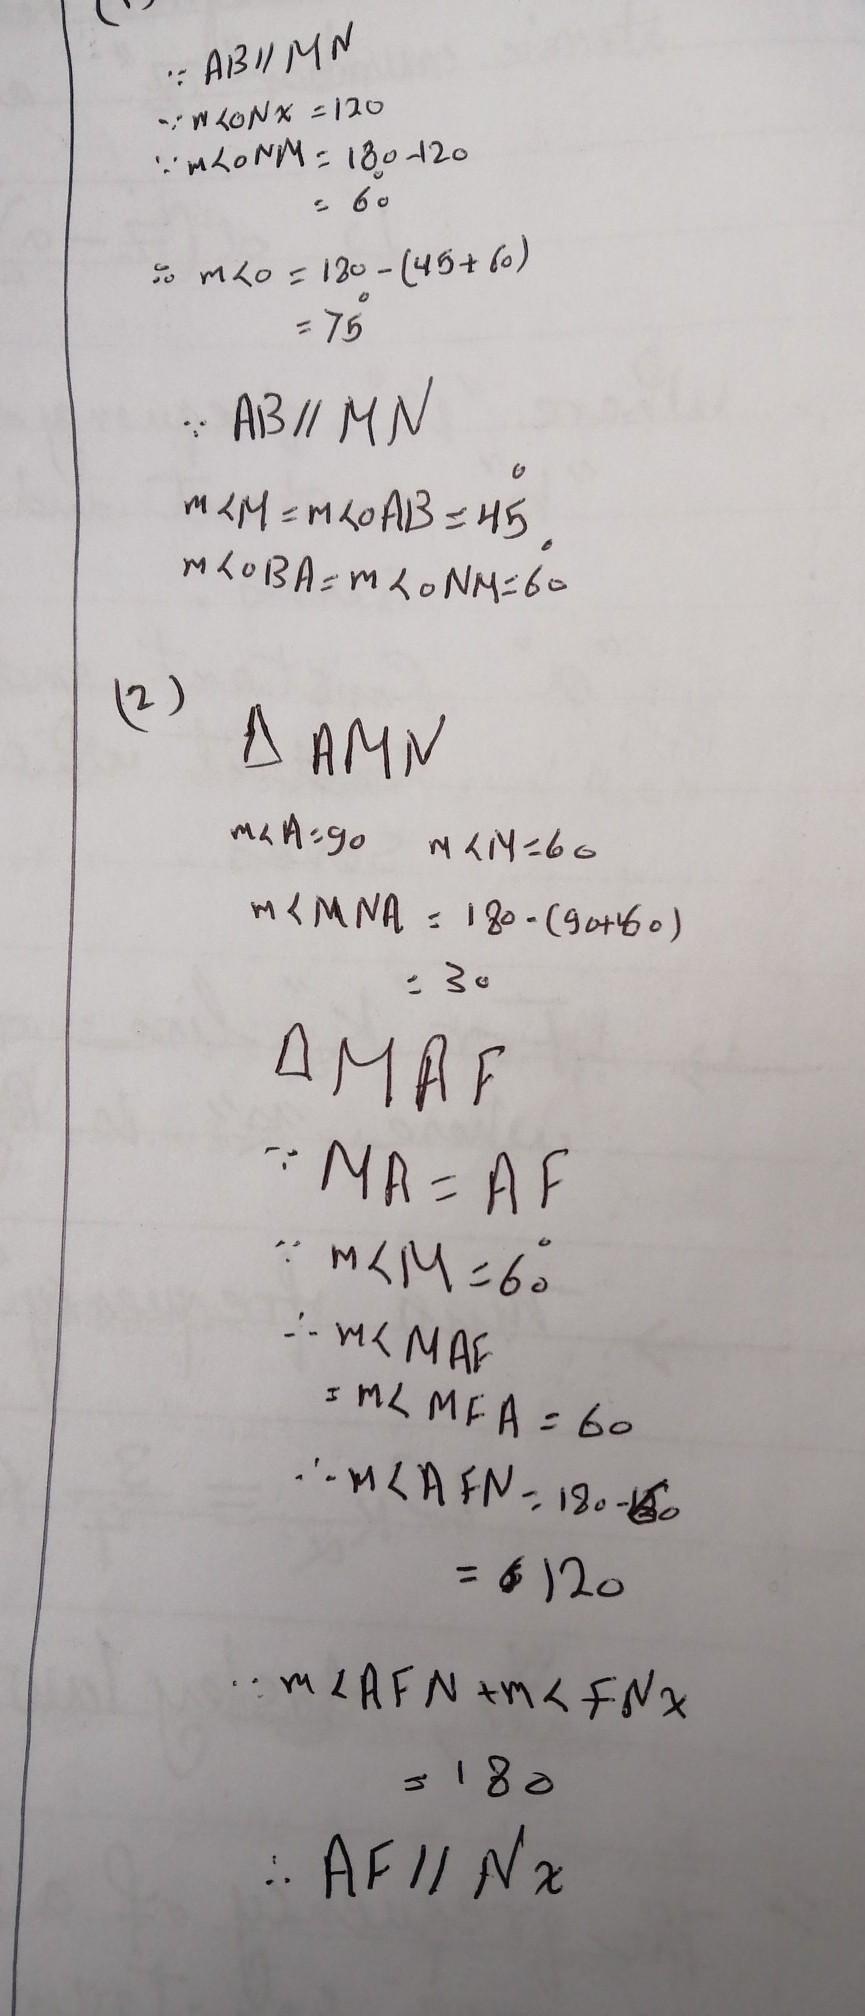 ∵ AB // MN
∵ m<ONX = 120
∵ m<ONM = 180-120
= 60°
∴ m<O = 180-(45+60)
= 75°
∵ AB // MN
m<M = m<OAB = 45°
m<OBA = m<ONM = 60°
(2)
Δ AMN
m<A=90 m<M=60
m<MNA = 180-(90+60)
= 30
Δ MAF
∵ MA = AF
∵ m<M = 60°
∴ m<MAF
= m<MFA = 60
∴ m<AFN = 180-60
= 120
∵ m<AFN + m<FNX
= 180
∴ AF // NX